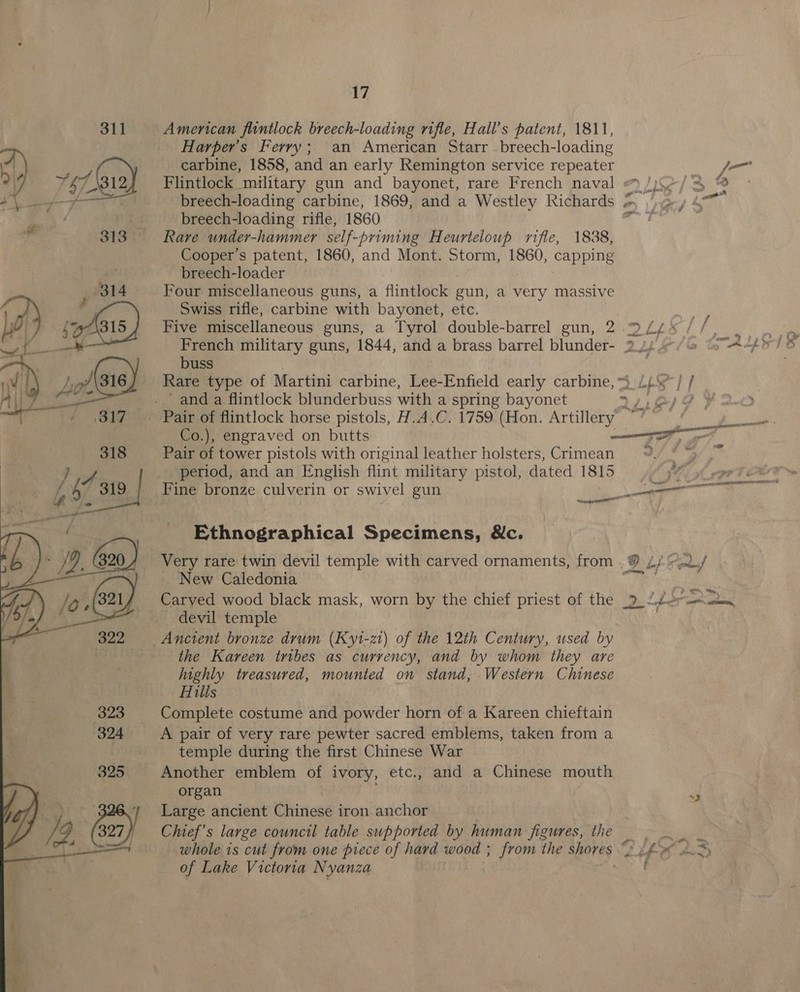 17
311 American flintlock breech-loading rifle, Hall's patent, 1811,
Harper's Ferry; an American Starr breech-loading
carbine, 1858, and an early Remington service repeater
312 Flintlock military gun and bayonet, rare French naval
breech-loading carbine, 1869, and a Westley Richards
breech-loading rifle, 1860
313 Rare under-hammer self-priming Heurteloup rifle, 1838,
Cooper's patent, 1860, and Mont. Storm, 1860, capping
breech-loader
314 Four miscellaneous guns, a flintlock gun, a very massive
Swiss rifle, carbine with bayonet, etc.
315 Five miscellaneous guns, a Tyrol double-barrel gun, 2
French military guns, 1844, and a brass barrel blunder-
buss
316 Rare type of Martini carbine, Lee-Enfield early carbine,
and a flintlock blunderbuss with a spring bayonet
317 Pair of flintlock horse pistols, H.A.C. 1759 (Hon. Artillery
Co.), engraved on butts
318 Pair of tower pistols with original leather holsters, Crimean
period, and an English flint military pistol, dated 1815
319 Fine bronze culverin or swivel gun
Ethnographical Specimens, &c.
320 Very rare twin devil temple with carved ornaments, from
New Caledonia
321 Carved wood black mask, worn by the chief priest of the
devil temple
322 Ancient bronze drum (Kyi-zi) of the 12th Century, used by
the Kareen tribes as currency, and by whom they are
highly treasured, mounted on stand, Western Chinese
Hills
323 Complete costume and powder horn of a Kareen chieftain
324 A pair of very rare pewter sacred emblems, taken from a
temple during the first Chinese War
325 Another emblem of ivory, etc., and a Chinese mouth
organ
326 Large ancient Chinese iron anchor
327 Chief's large council table supported by human figures, the
whole is cut from one piece of hard wood; from the shores
of Lake Victoria Nyanza